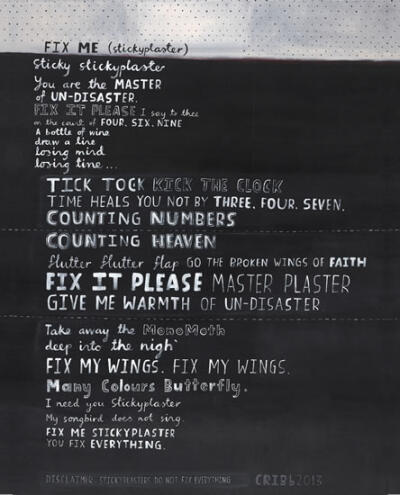 FIX ME (stickyplaster)
Sticky stickyplaster
You are the MASTER
of UN-DISASTER.
FIX IT PLEASE I say to thee
on the count of FOUR. SIX. NINE
A bottle of wine
draw a line
losing mind
losing time ...
TICK TOCK KICK THE CLOCK
TIME HEALS YOU NOT BY THREE. FOUR. SEVEN.
COUNTING NUMBERS
COUNTING HEAVEN
flutter flutter flap GO THE BROKEN WINGS OF FAITH
FIX IT PLEASE MASTER PLASTER
GIVE ME WARMTH OF UN-DISASTER
Take away the MonoMoth
deep into the nigh
FIX MY WINGS. FIX MY WINGS.
Many Colours Butterfly.
I need you Stickyplaster
My songbird does not sing.
FIX ME STICKYPLASTER
YOU FIX EVERYTHING.
DISCLAIMER: STICKYPLASTERS DO NOT FIX EVERYTHING CRIBB2013